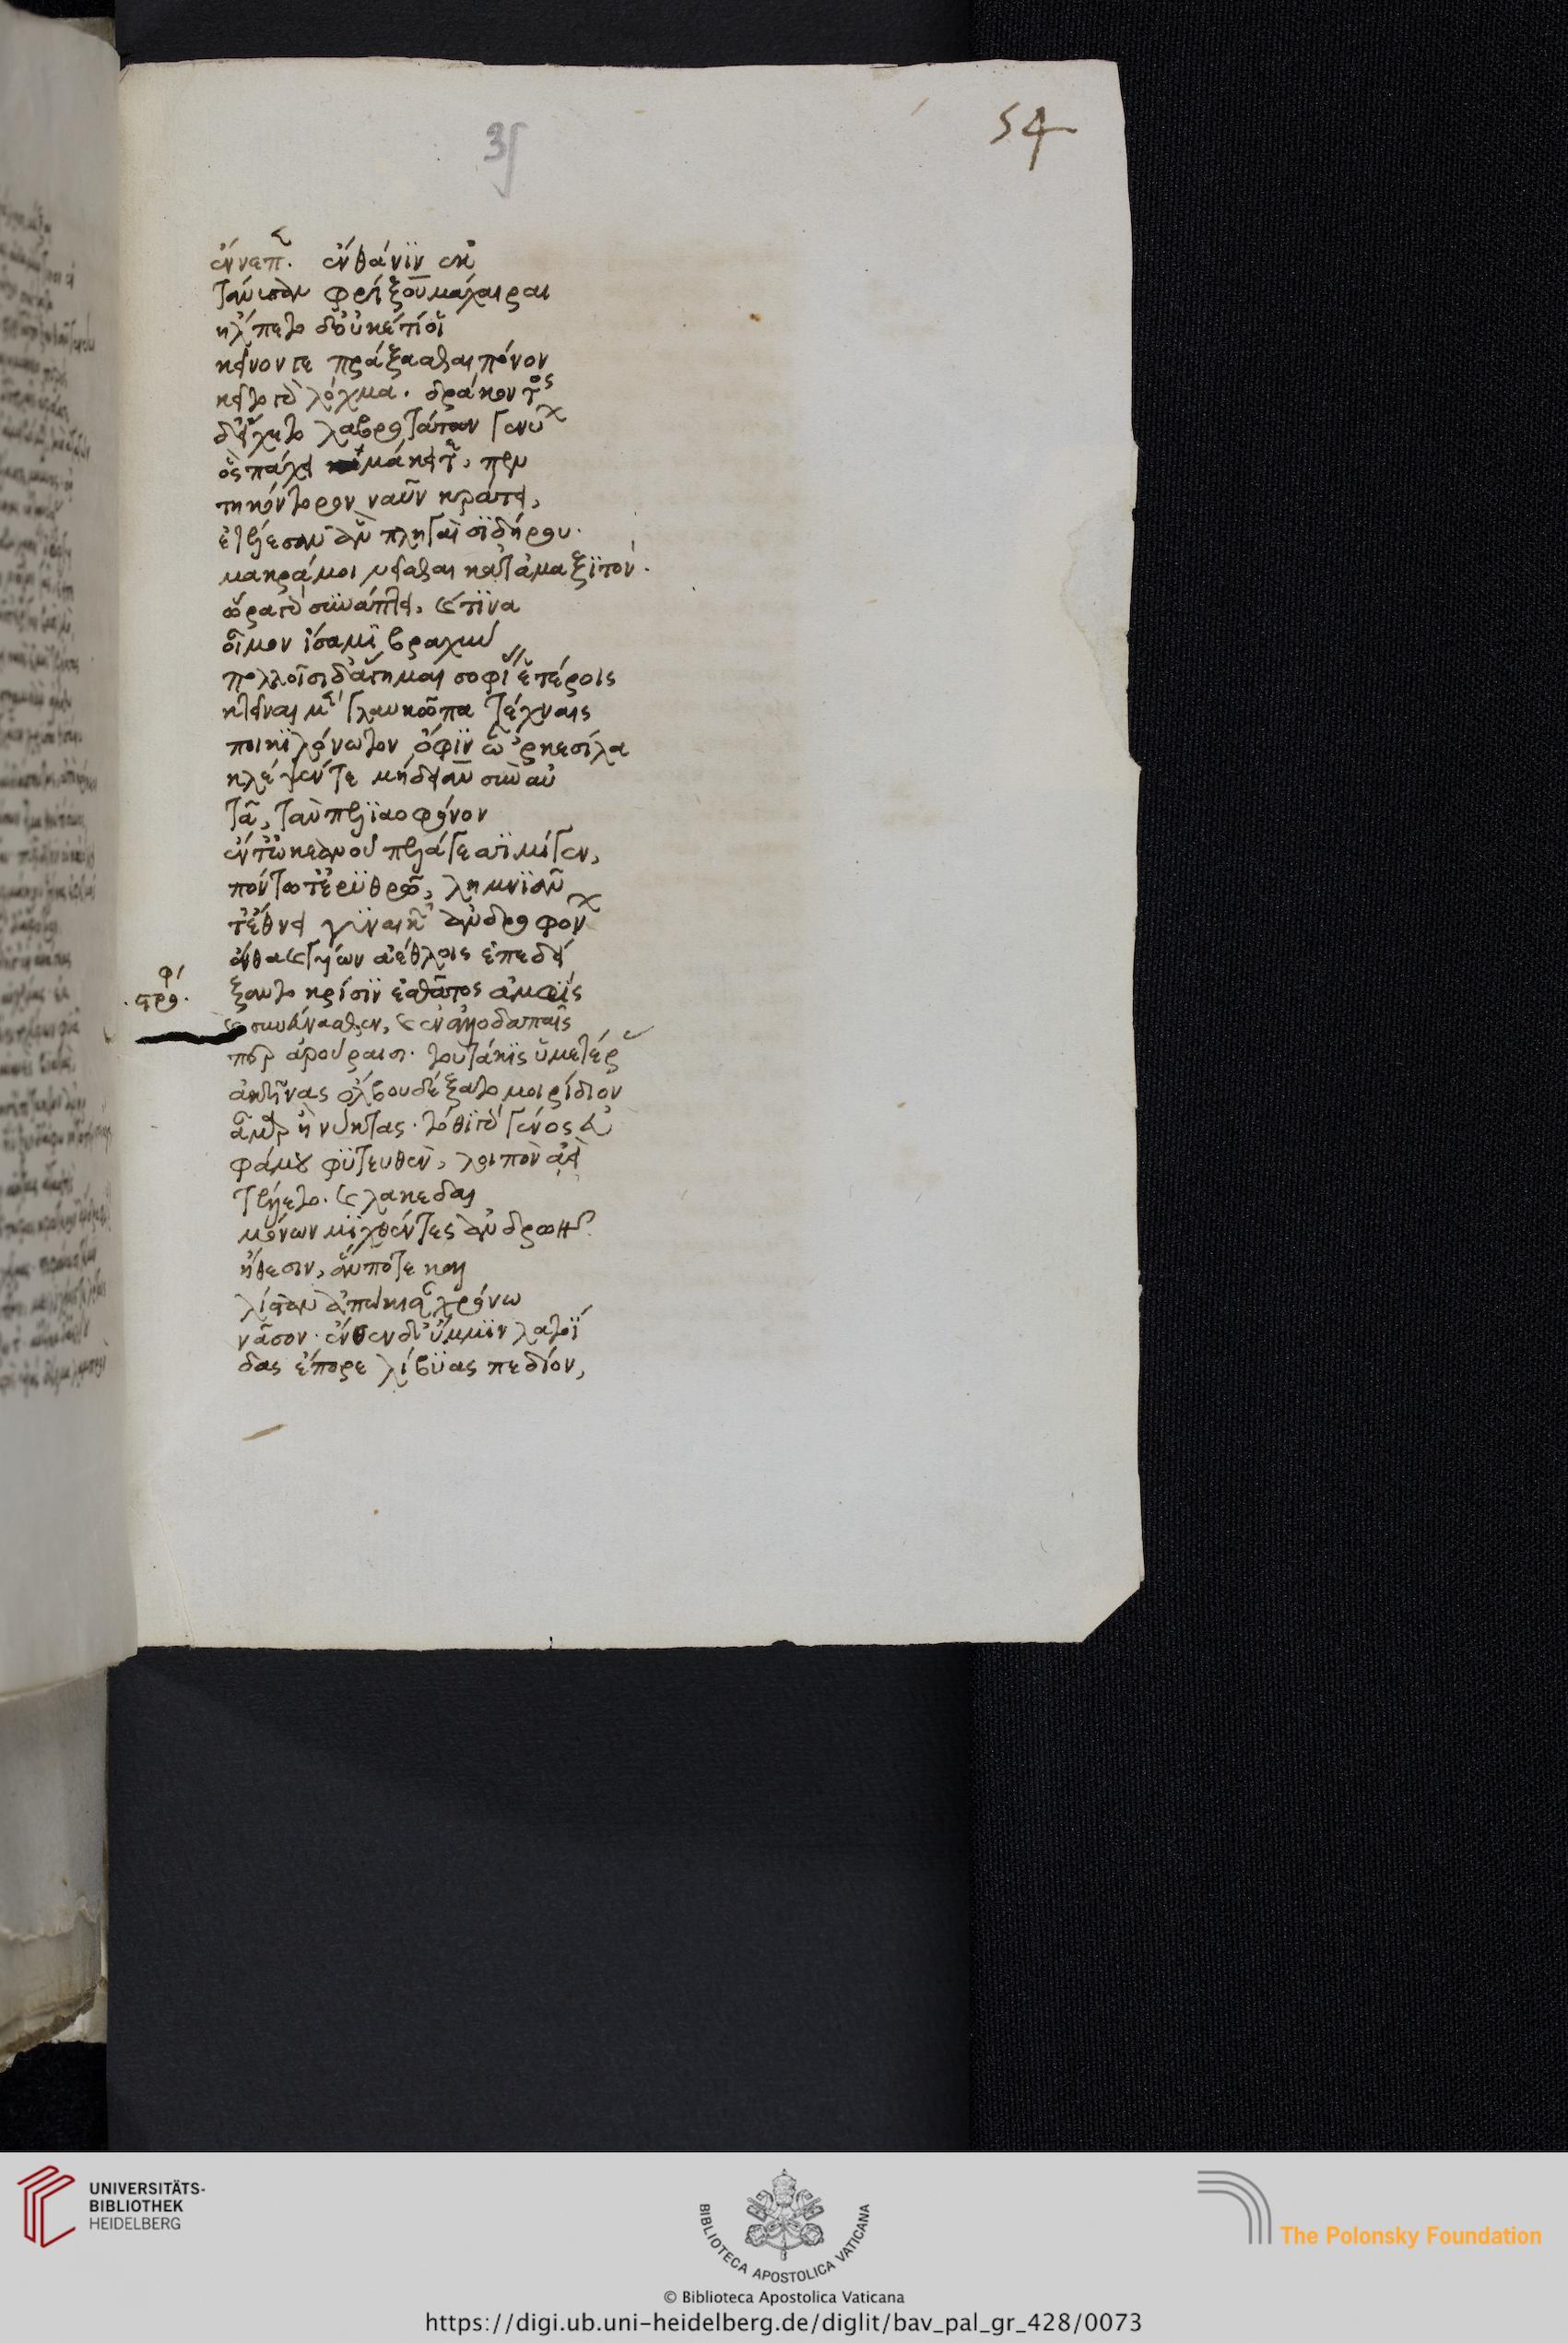 54
35
ἔννεπεν. ἔνθά νϊν ἐκ
τάνυσαν φρίξου μάχαιραι
ἤλπετο δ' οὐκέτι οἷ
κεῖνον γε πράξασθαι πόνον
κεῖτο γὰρ λόχμα. δράκοντος
δ' εἴχετο λαβροτάταν γενύων
ὃς πάχει μάκει τε, πεν
τηκόντορον ναῦν κράτει,
ἐτέλεσαν ἂν πληγαὶ σϊδήρου.
μακρά μοι νεῖσθαι κατ' ἀμαξϊτόν.
ὥρα γὰρ συνάπτει, καὶ τϊνα
οἶμον ἴσαμϊ βραχύν
πολλοῖσι δ' ἅγημαι σοφίας ἑτέροις
κτεῖναι μὲν γλαυκῶπα τέχναις
ποικϊλόνωτον ὄφϊν ὦ ἀρκεσίλα
κλέψεν τε μήδειαν σὺν αὐ
τᾶ, τὰν πελϊαο φόνον
ἔν τ' ὠκεανοῦ πελάγεσσϊ μίγεν,
πόντω τ' ἐρϋθρῶ, λημνϊᾶν
τ' ἔθνει γϋναικῶν ἀνδροφόνων
ἔνθα καὶ γυίων ἀέθλοις ἐπεδεί
ξαντο κρίσϊν ἐσθᾶτος ἀμφὶς
καὶ συνεύνασθεν, καὶ ἐν ἀλλοδαπαῖς
περ ἀρούραισι. τουτάκϊς ὑμετέρας
ἀκτῖνας ὄλβου δέξατο μοιρίδιον
ἆμαρ ἢ νύκτας. τόθϊ γὰρ γένος εὐ
φάμου φϋτευθὲν, λοιπὸν αἰεὶ
τέλλετο. καὶ λακεδαι
μονίων μϊχθέντες ἀνδρῶν
ἤθεσιν, ἄν ποτε καλ
λίσταν ἀπώκησαν χρόνω
νᾶσον. ἔνθεν δ' ὔμμϊν λατοΐ
δας ἔπορε λϊβύας πεδίον,
UNIVERSITÄTS-
BIBLIOTHEK
HEIDELBERG
BIBLIOTECA APOSTOLICA VATICANA
The Polonsky Foundation
© Biblioteca Apostolica Vaticana
https://digi.ub.uni-heidelberg.de/diglit/bav_pal_gr_428/0073